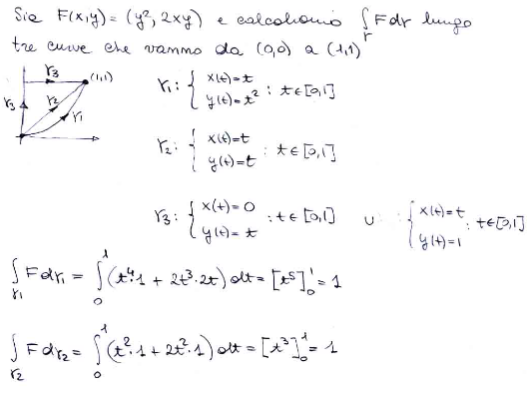 Sia F(x,y) = (y², 2xy) e calcoliamo ∫_γ F dr lungo
tre curve che vanno da (0,0) a (1,1)
γ3 (1,1) γ2 γ3 γ1
γ1: { x(t)=t y(t)=t² : t∈[0,1]
γ2: { x(t)=t y(t)=t : t∈[0,1]
γ3: { x(t)=0 y(t)=t : t∈[0,1] ∪ : { x(t)=t y(t)=1 : t∈[0,1]
∫_γ1 F dγ1 = ∫_0^1 (t⁴·1 + 2t³·2t) dt = [t⁵]_0^1 = 1
∫_γ2 F dγ2 = ∫_0^1 (t²·1 + 2t²·1) dt = [t³]_0^1 = 1